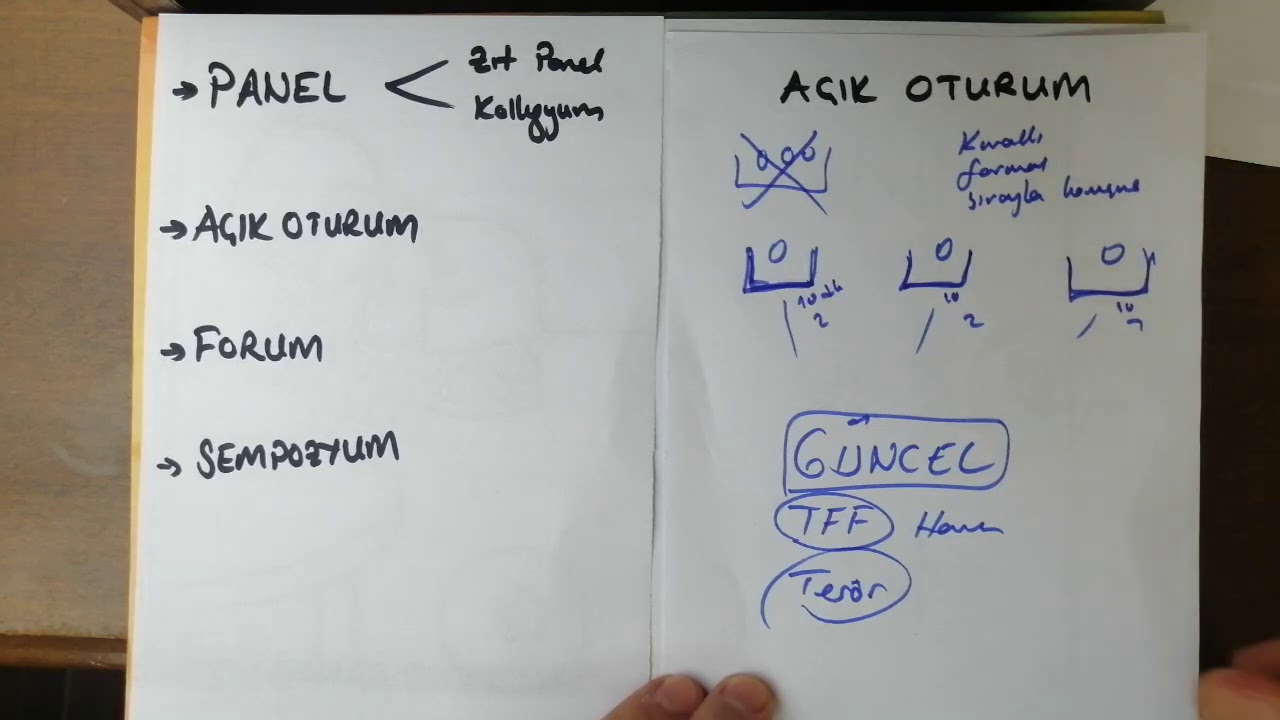 → PANEL
Zıt Panel
Kollegyum
→ AÇIK OTURUM
→ FORUM
→ SEMPOZYUM
AÇIK OTURUM
Kurallı
format
sırayla konuşma
10 dk
2
10
2
10
GÜNCEL
TFF
Terör